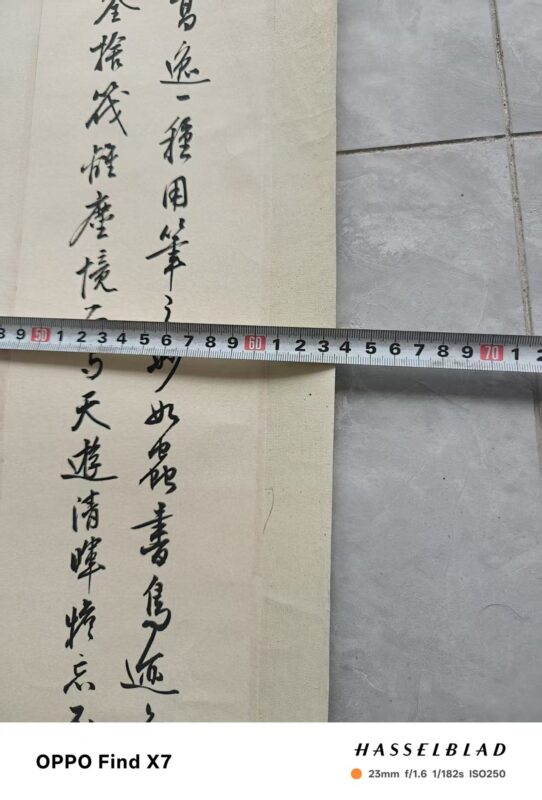 寫遠一種用筆之妙如蟲書鳥迹
筌捨筏離塵境而與天遊清暉憺忘
8 9 50 1 2 3 4 5 6 7 8 9 60 1 2 3 4 5 6 7 8 9 70 1 2
OPPO Find X7
HASSELBLAD
23mm f/1.6 1/182s ISO250